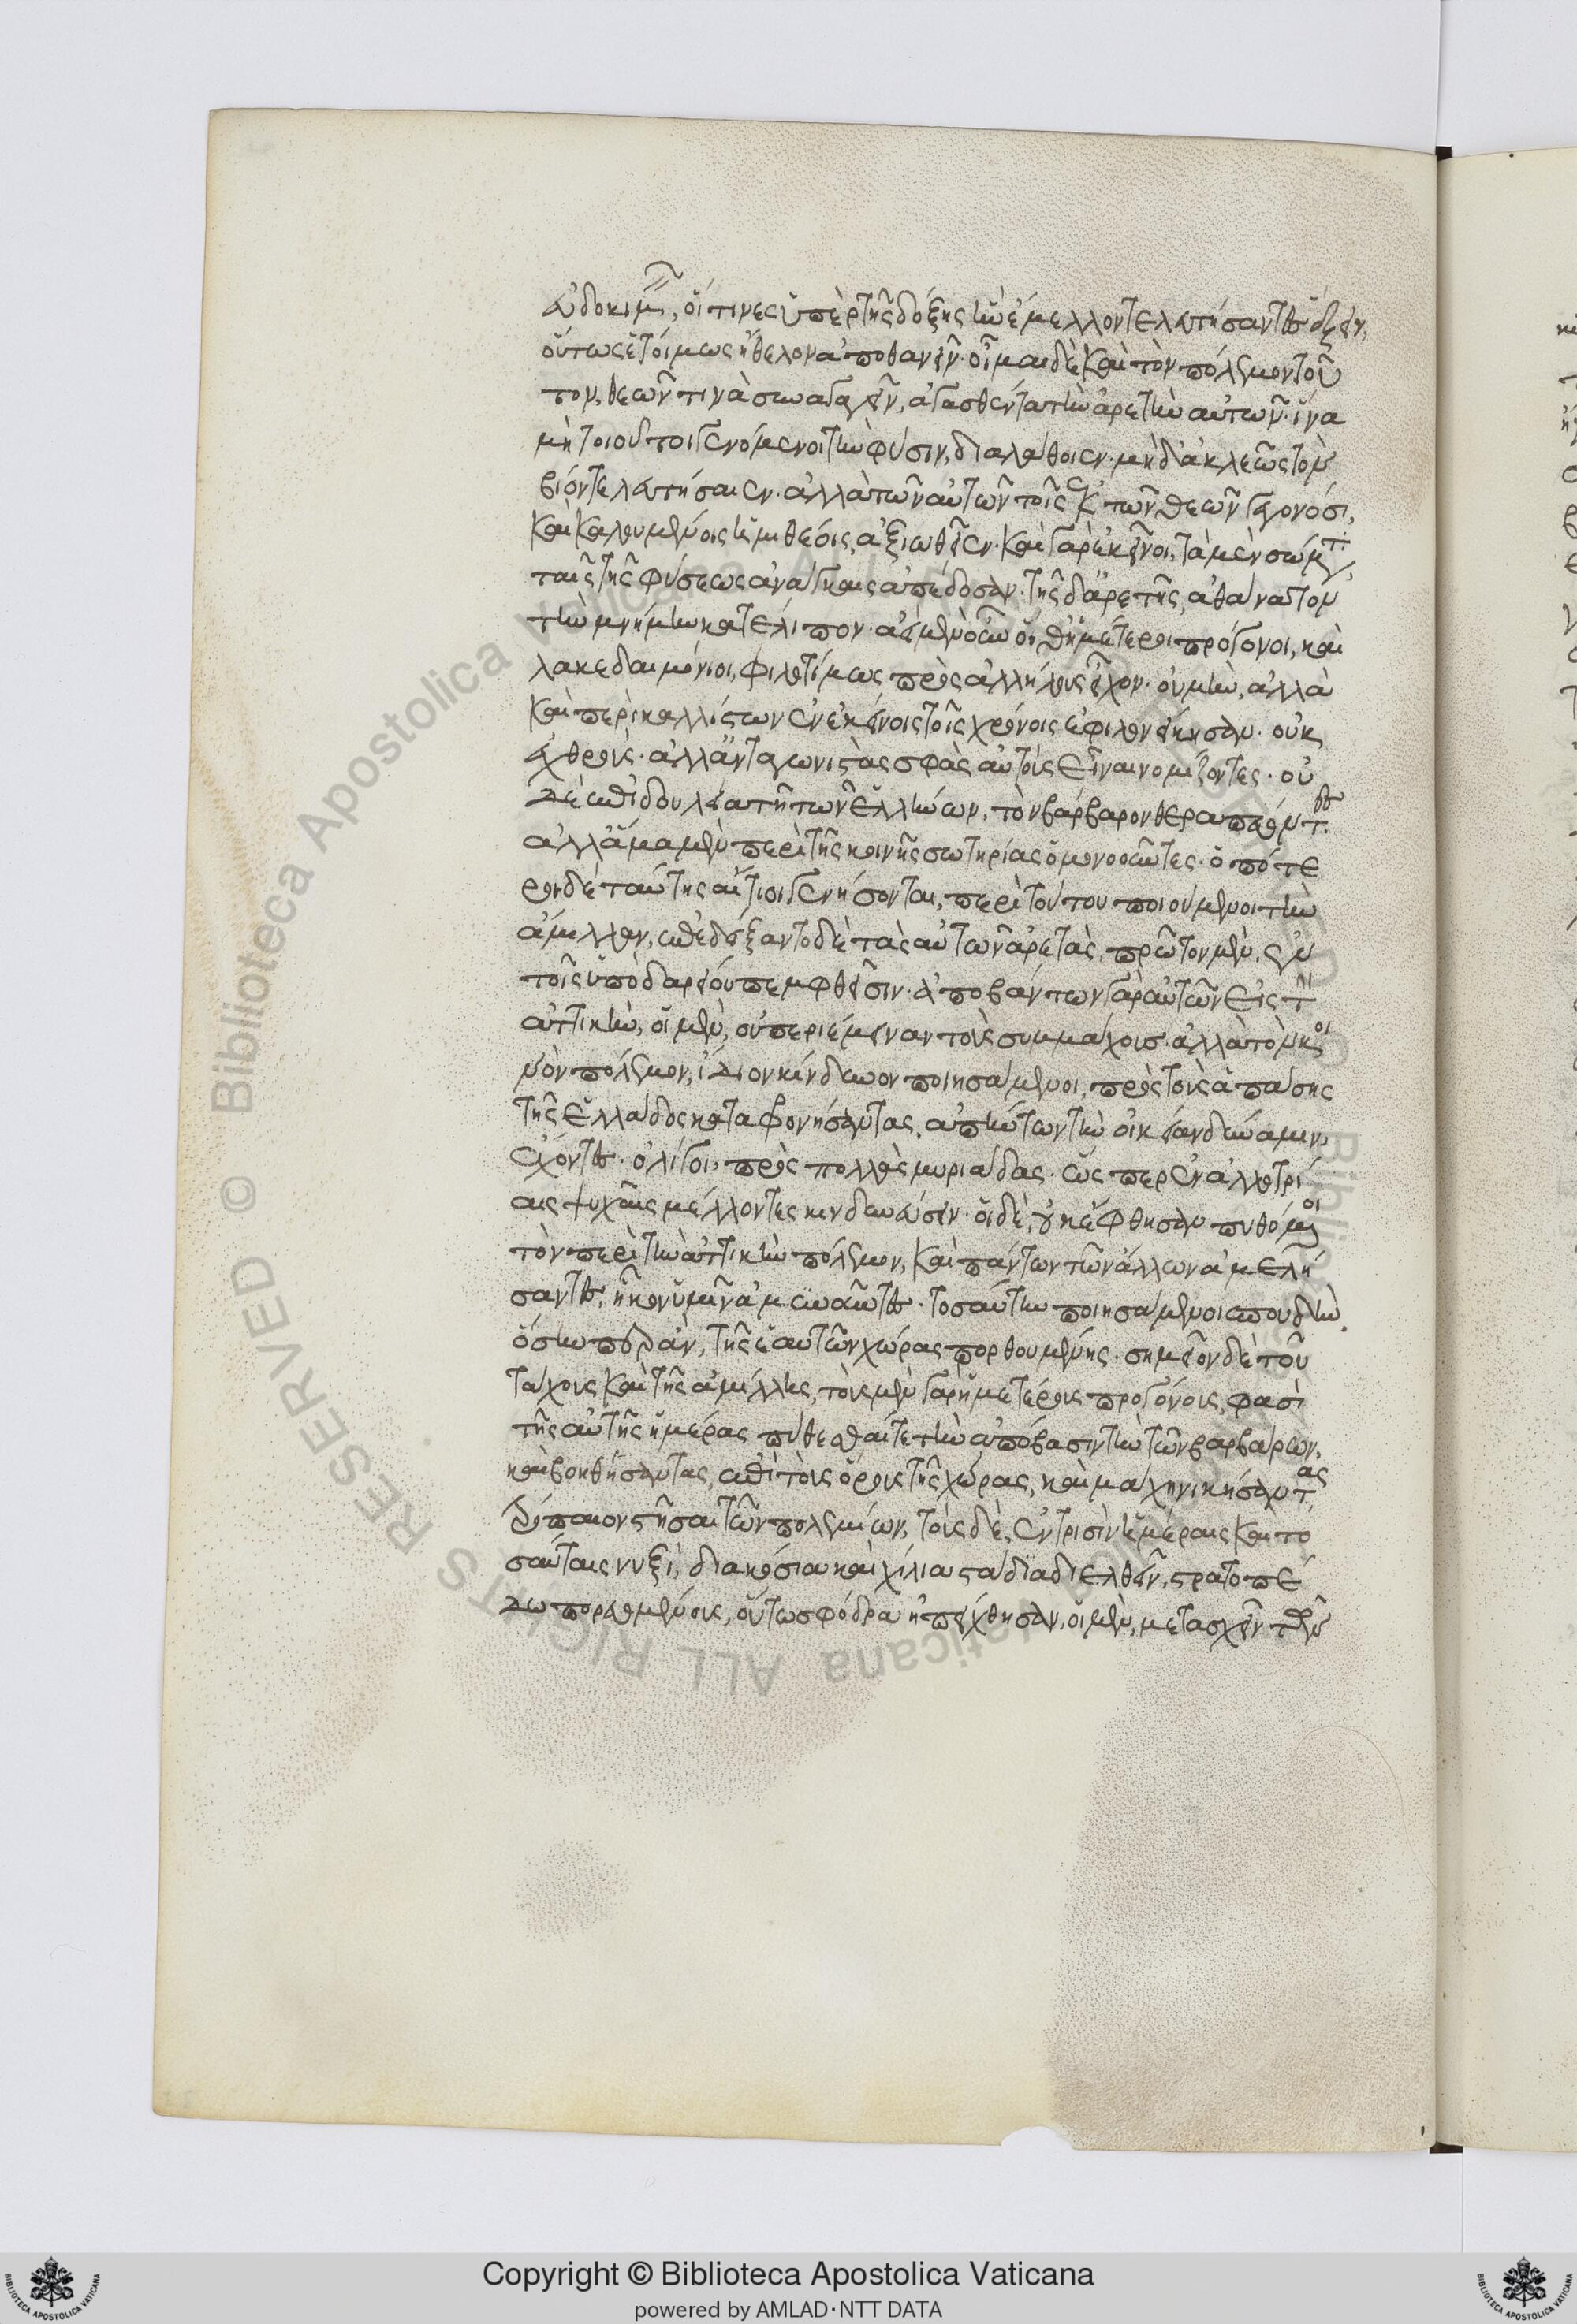 εὐδοκιμεῖν, οἵτινες ὑπὲρ τῆς δόξης ἣν ἔμελλον τελευτήσαντες ἕξειν,
οὕτως ἑτοίμως ἤθελον ἀποθανεῖν· οἶμαι δὲ καὶ τὸν πόλεμον τοῦ
τον, θεῶν τινὰ συναγαγεῖν, ἀγασθέντα τὴν ἀρετὴν αὐτῶν· ἵνα
μὴ τοιοῦτοι γενόμενοι τὴν φύσιν, διαλάθοιεν· μηδ' ἀκλεῶς τὸν
βίον τελευτήσαιεν· ἀλλὰ τῶν αὐτῶν τοῖς ἐκ τῶν θεῶν γεγονόσι,
καὶ καλουμένοις ἡμιθέοις, ἀξιωθεῖεν· καὶ γὰρ ἐκεῖνοι, τὰ μὲν σώματα
ταῖς τῆς φύσεως ἀνάγκαις ἀπέδοσαν· τῆς δ' ἀρετῆς, ἀθάνατον
τὴν μνήμην κατέλιπον· ἀεὶ μὲν οὖν οἵ θ' ἡμέτεροι πρόγονοι, καὶ
λακεδαιμόνιοι, φιλοτίμως πρὸς ἀλλήλους εἶχον· οὐ μὴν, ἀλλὰ
καὶ περὶ καλλίστων ἐν ἐκείνοις τοῖς χρόνοις ἐφιλονείκησαν· οὐκ
ἐχθροὺς· ἀλλ' ἀνταγωνιστὰς σφὰς αὐτοὺς εἶναι νομίζοντες· οὐ
δὲ ἐπὶ δουλεία τῆ τῶν ἑλλήνων, τὸν βάρβαρον θεραπεύοντες
ἀλλ' ἅμα μὲν περὶ τῆς κοινῆς σωτηρίας ὁμονοοῦντες· ὁπότε
ροι δὲ ταύτης αἴτιοι γενήσονται, περὶ τούτου ποιούμενοι τὴν
ἅμιλλαν, ἐπεδείξαντο δὲ τὰς αὐτῶν ἀρετὰς, πρῶτον μὲν, ἐν
τοῖς ὑπὸ δαρείου πεμφθεῖσιν· ἀποβάντων γὰρ αὐτῶν εἰς τὴν
ἀττικὴν, οἱ μὲν, οὐ περιέμειναν τοὺς συμμάχους· ἀλλὰ τὸν κοι
νὸν πόλεμον, ἴδιον κίνδυνον ποιησάμενοι, πρὸς τοὺς ἁπάσης
τῆς ἑλλάδος καταφρονήσαντας, ἀπήντων τὴν οἰκείαν δύναμιν
ἔχοντες· ὀλίγοι, πρὸς πολλὰς μυριάδας· ὥσπερ ἐν ἀλλοτρί
αις ψυχαῖς μέλλοντες κινδυνεύσειν· οἱ δὲ, οὐκ ἔφθησαν πυθόμενοι
τὸν περὶ τὴν ἀττικὴν πόλεμον, καὶ πάντων τῶν ἄλλων ἀμελή
σαντες, ἧκον ἡμῖν ἀμυνοῦντες· τοσαύτην ποιησάμενοι σπουδὴν,
ὅσην περ ἂν, τῆς ἑαυτῶν χώρας πορθουμένης· σημεῖον δὲ τοῦ
τάχους καὶ τῆς ἁμίλλης, τοὺς μὲν γὰρ ἡμετέρους προγόνους, φασὶ
τῆς αὐτῆς ἡμέρας πυθέσθαι τε τὴν ἀπόβασιν τὴν τῶν βαρβάρων,
καὶ βοηθήσαντας, ἐπὶ τοὺς ὅρους τῆς χώρας, καὶ μάχη νικήσαντας
τρόπαιον στῆσαι τῶν πολεμίων, τοὺς δὲ, ἐν τρισὶν ἡμέραις καὶ το
σαύταις νυξὶ, διακόσια καὶ χίλια στάδια διελθεῖν, στρατοπέ
δω πορευομένους, οὕτω σφόδρα ἠπείχθησαν, οἱ μὲν, μετασχεῖν τῶν
Copyright © Biblioteca Apostolica Vaticana
powered by AMLAD·NTT DATA